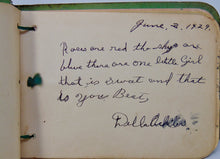 June, 2, 1929.
Roses are red the skys are
blue there are one little Girl
that is sweat and that
is you Bess,